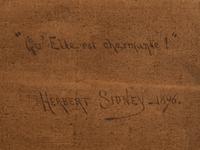 "Qu'Elle est charmante!"
Herbert Sidney_1896.